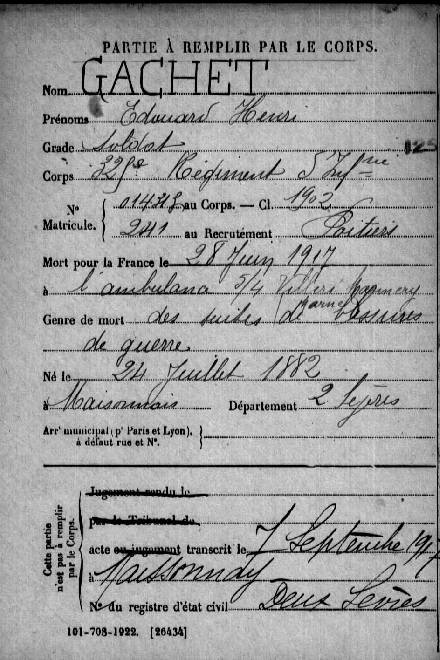 PARTIE À REMPLIR PAR LE CORPS.
Nom GACHET
Prénoms Edouard Henri
Grade Soldat
125
Corps 325e Régiment d'Infrie
N° Matricule. 01448 au Corps. — Cl. 1902
241 au Recrutement Poitiers
Mort pour la France le 28 Juin 1917
à l'ambulance 5/4 Villers Marmery
Marne
Genre de mort des suites de blessures
de guerre
Né le 24 Juillet 1882
à Maisonnais Département 2 Sèvres
Arrt municipal (pr Paris et Lyon), à défaut rue et N°.
Cette partie n'est pas à remplir par le Corps.
Jugement rendu le
par le Tribunal de
acte ou jugement transcrit le 7 Septembre 1917
à Maissonnay
N° du registre d'état civil Deux Sèvres
101-708-1922. [26434]